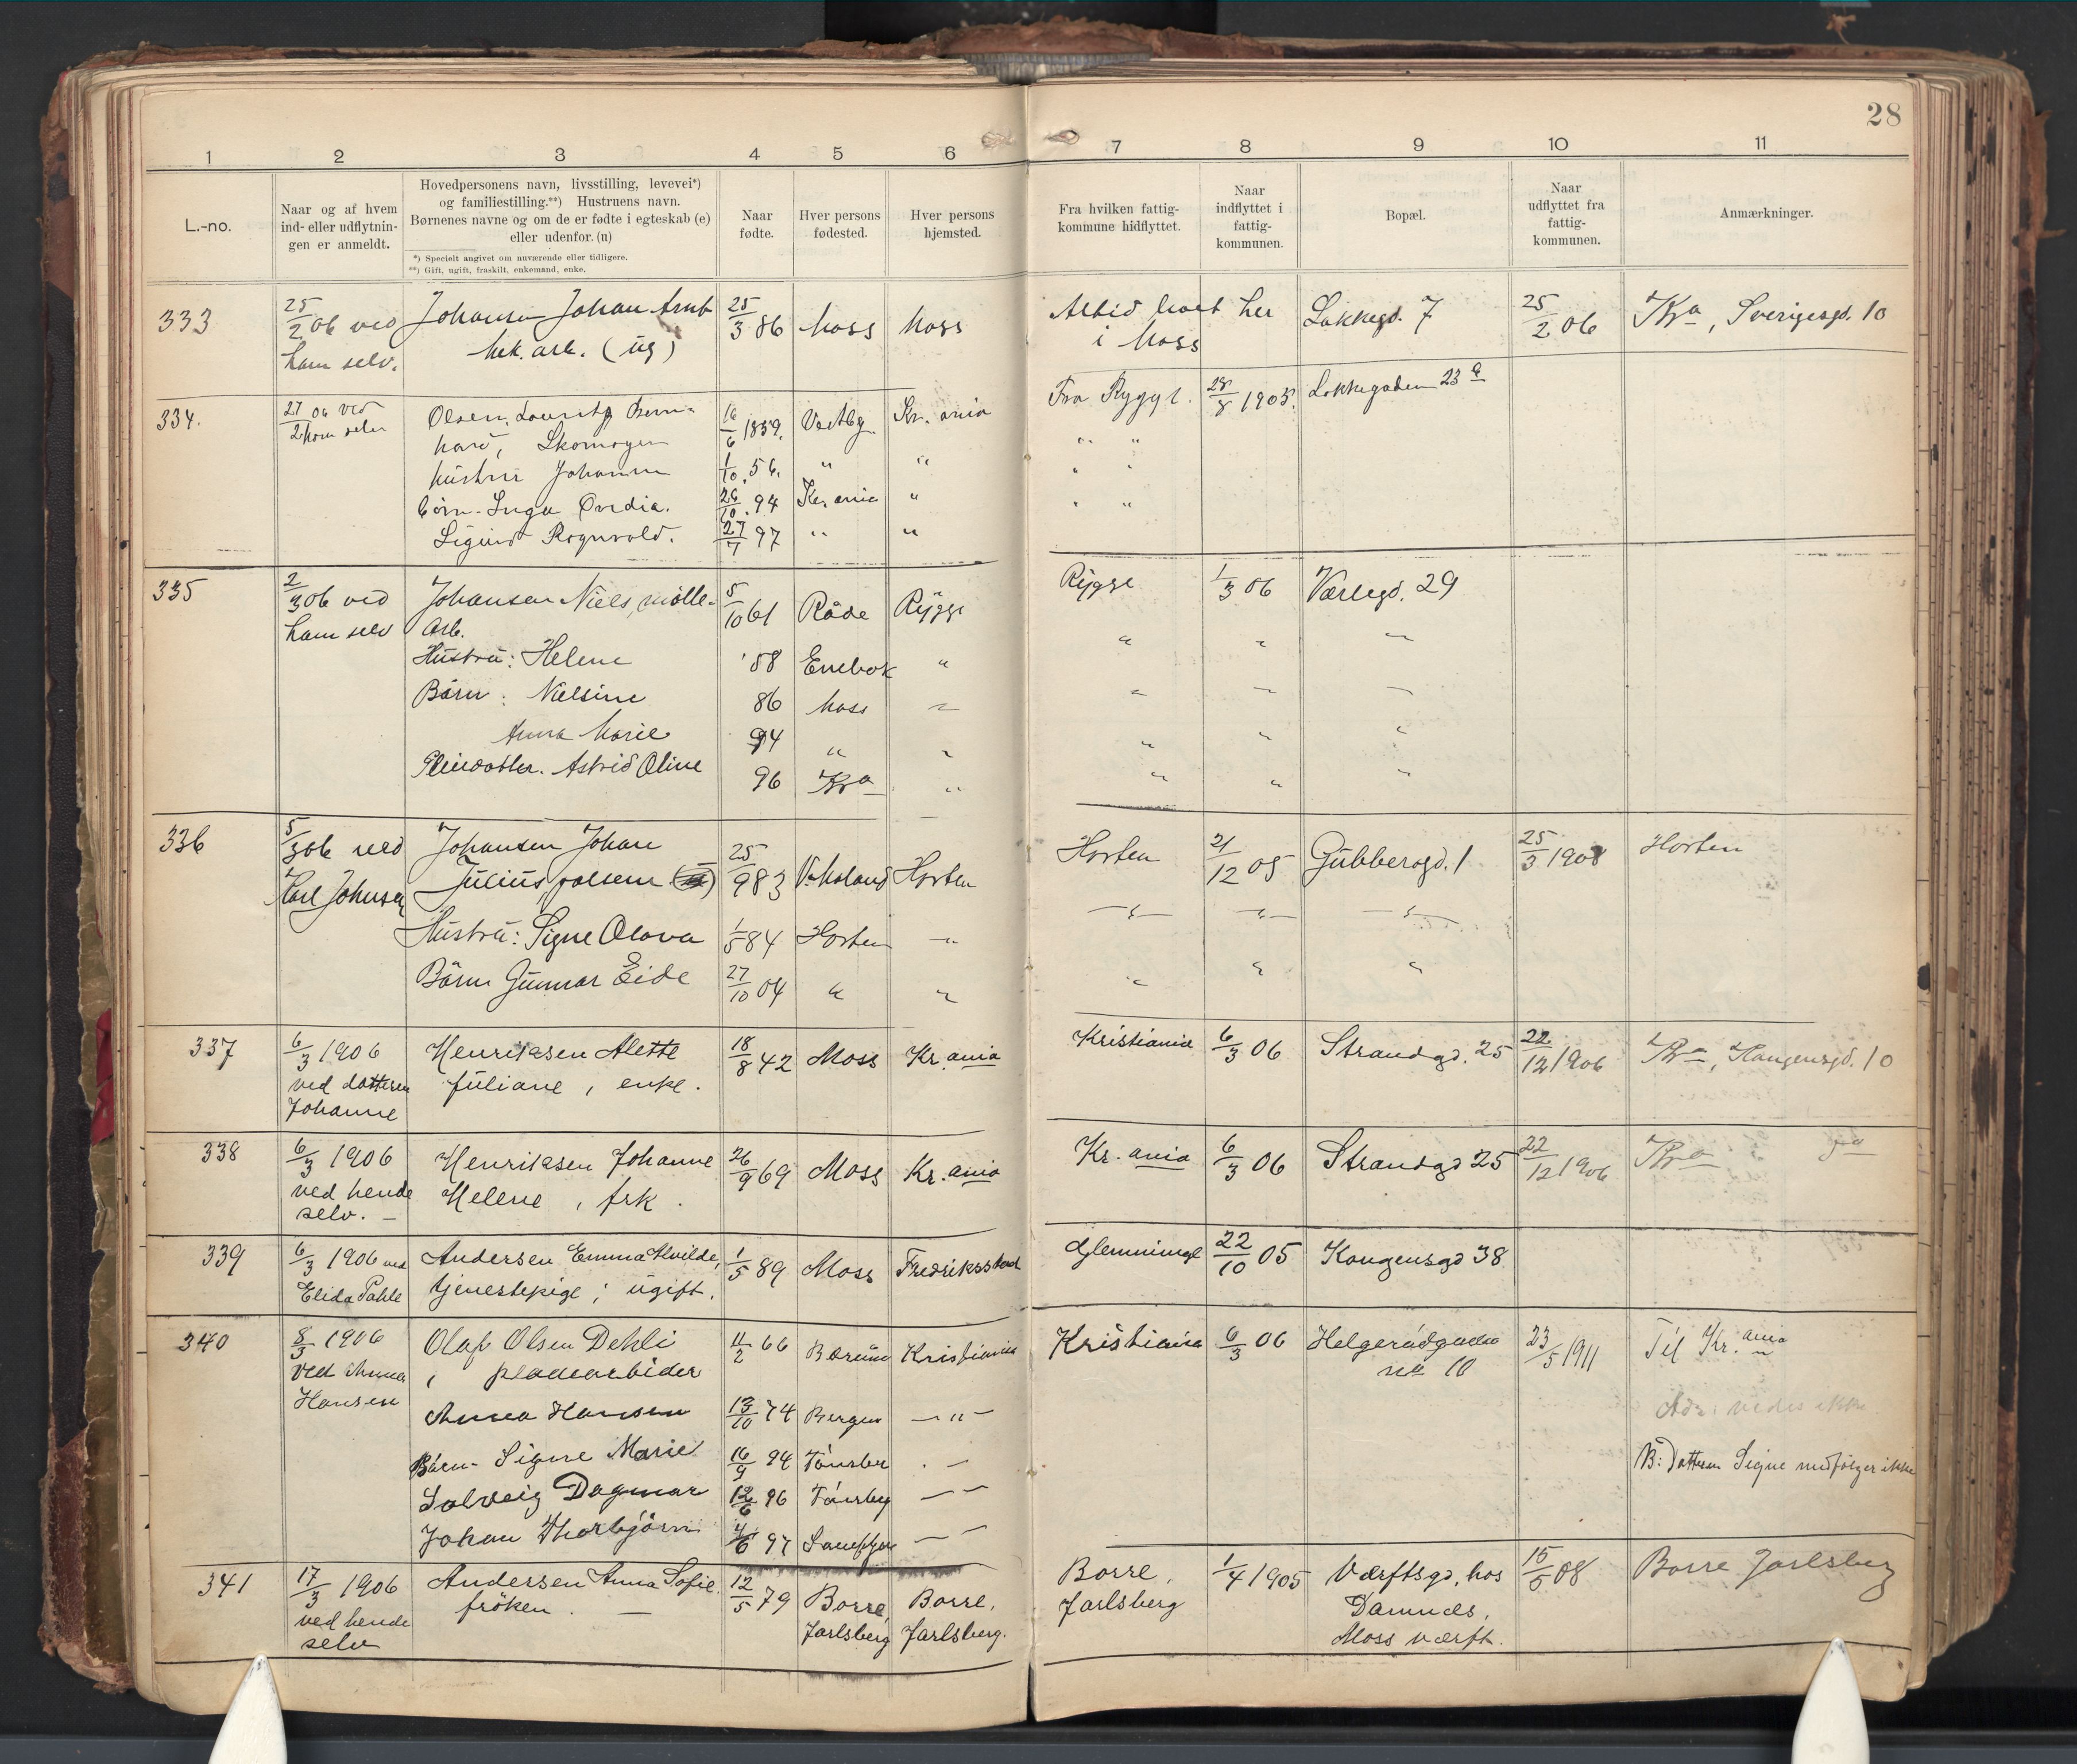 28
1 2 3 4 5 6 7 8 9 10 11
L.-no.
Naar og af hvem
ind- eller udflytnin-
gen er anmeldt.
Hovedpersonens navn, livsstilling, levevei*)
og familiestilling.**) Hustruens navn.
Børnenes navne og om de er fødte i egteskab (e)
eller udenfor. (u)
*) Specielt angivet om nuværende eller tidligere.
**) Gift, ugift, fraskilt, enkemand, enke.
Naar
fødte.
Hver persons
fødested.
Hver persons
hjemsted.
Fra hvilken fattig-
kommune hidflyttet.
Naar
indflyttet i
fattig-
kommunen.
Bopæl.
Naar
udflyttet fra
fattig-
kommunen.
Anmærkninger.
333 25/2 06 ved Johansen Johan Arnt 25/3 86 Moss Moss Altid boet her Løkkegd. 7 25/2 06 Kra, Sverigesgd. 10
ham selv. mek. arb. (ug) i Moss
334. 27/2 06 ved Olsen, Lauritz Bern- 16/6 1859. Vestby Kr. ania Fra Rygge. 28/8 1905. Løkkegaden 23 a
ham selv hard, Skomager " "
hustru Johanne 1/10. 56. " " " "
børn - Inga Ovedia. 26/10. 94 Kr. ania " " "
Sigurd Rognvald. 27/7 97 " "
335 2/3 06 ved Johansen Niels, mølle- 5/10 61 Råde Rygge Rygge 1/3 06 Værlegd. 29
ham selv Arb. " " "
Hustru: Helene '58 Enebak "
Børn: Nielsine 86 Moss " " " "
Anna Marie 94 " " " " "
Pleiedatter. Astrid Oline 96 Kra " " " "
336 5/3 06 ved Johansen Johan 25/9 83 V. Moland Horten Horten 21/12 05 Gubberogd. 1 25/3 1908 Horten
Karl Johnsen Julius,
Hustru: Signe Olava 1/5 84 Horten " " " "
Børn Gunnar Eide 27/10 04 " " " " "
337 6/3 1906 Henriksen Alette 18/8 42 Moss Kr. ania Kristiania 6/3 06 Strandgd. 25 22/12 1906 Kra, Haugensgd. 10
ved datteren Juliane, enke.
Johanne
338 6/3 1906 Henriksen Johanne 26/9 69 Moss Kr. ania Kr. ania 6/3 06 Strandgd 25 22/12 1906 Kra
ved hende Helene, frk.
selv. -
339 6/3 1906 ved Andersen Emma Alvilde, 1/5 89 Moss Fredriksstad Glemminge 22/10 05 Kongensgd 38
Elida Pahle tjenestepige; ugift.
340 8/3 1906 Olaf Olsen Dehli 11/2 66 Bærum Kristiania Kristiania 6/3 06 Helgerødgaden 23/5 1911 Til Kr. ania
ved Anna , pladearbeider no 10
Hansen Anna Hansen 13/10 74 Bergen - " - Adr: vides ikke
Børn - Signe Marie 16/9 94 Tønsber - B: Datteren Signe medfølger ikke
Solveig Dagmar 12/6 96 Tønsberg - -
Johan Thorbjørn 4/6 97 Sandefjor - -
341 17/3 1906 Andersen Anna Sofie. 12/5 79 Borre, Borre. Borre, 1/4 1905 Værftsgd, hos 15/5 08 Borre Jarlsberg
ved hende frøken. - Jarlsberg Jarlsberg. Jarlsberg Damnæs,
selv Moss værft.